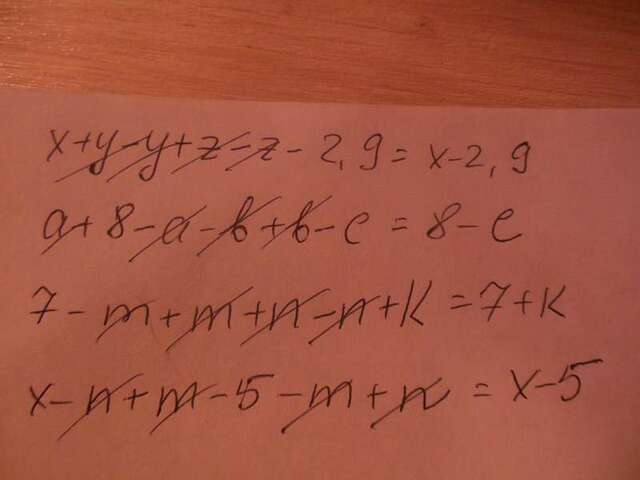 x+y-y+z-z-2,9=x-2,9
a+8-a-b+b-c=8-c
7-m+m+n-n+k=7+k
x-n+m-5-m+n=x-5